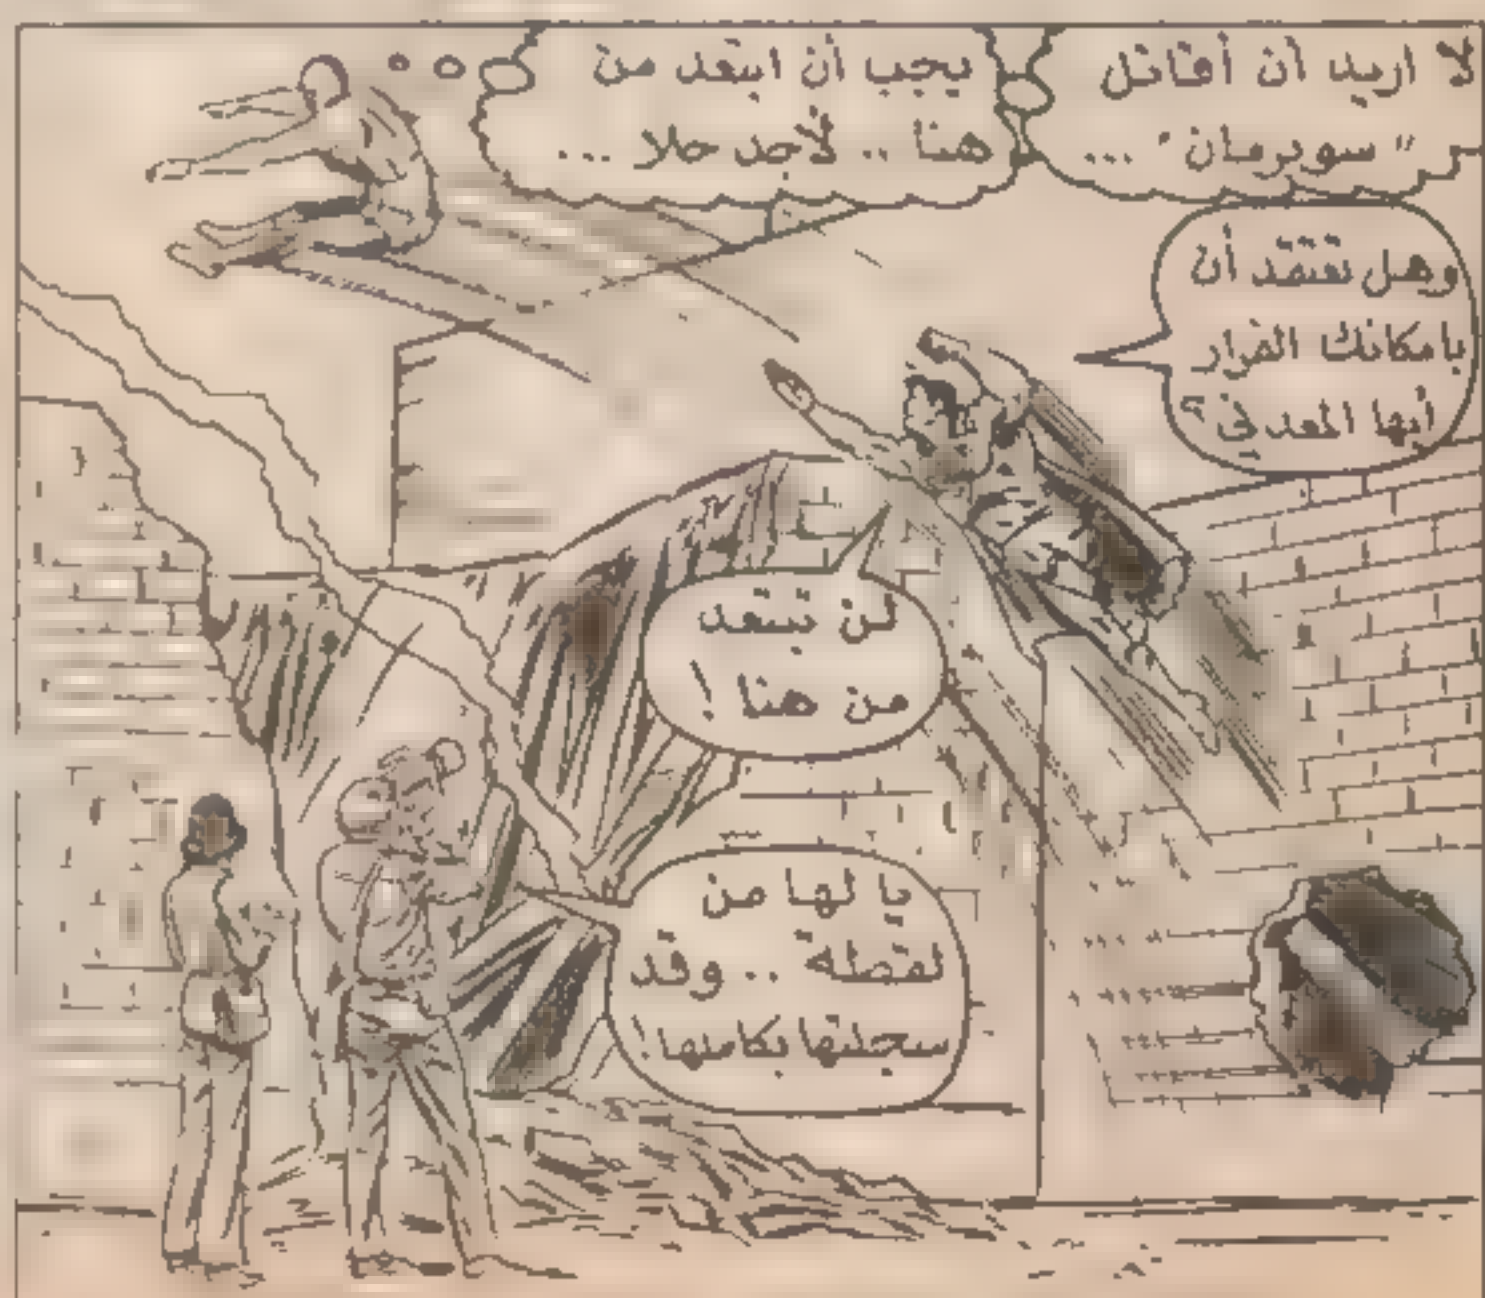 لا اريد أن أقاتل
" سوبرمان " ...
يجب أن ابتعد من
هنا .. لأجد حلا ...
وهل تعتقد أن
بامكانك الفرار
أيها المعدني ؟
لن تبتعد
من هنا !
يا لها من
لقطة .. وقد
سجلتها بكاملها !